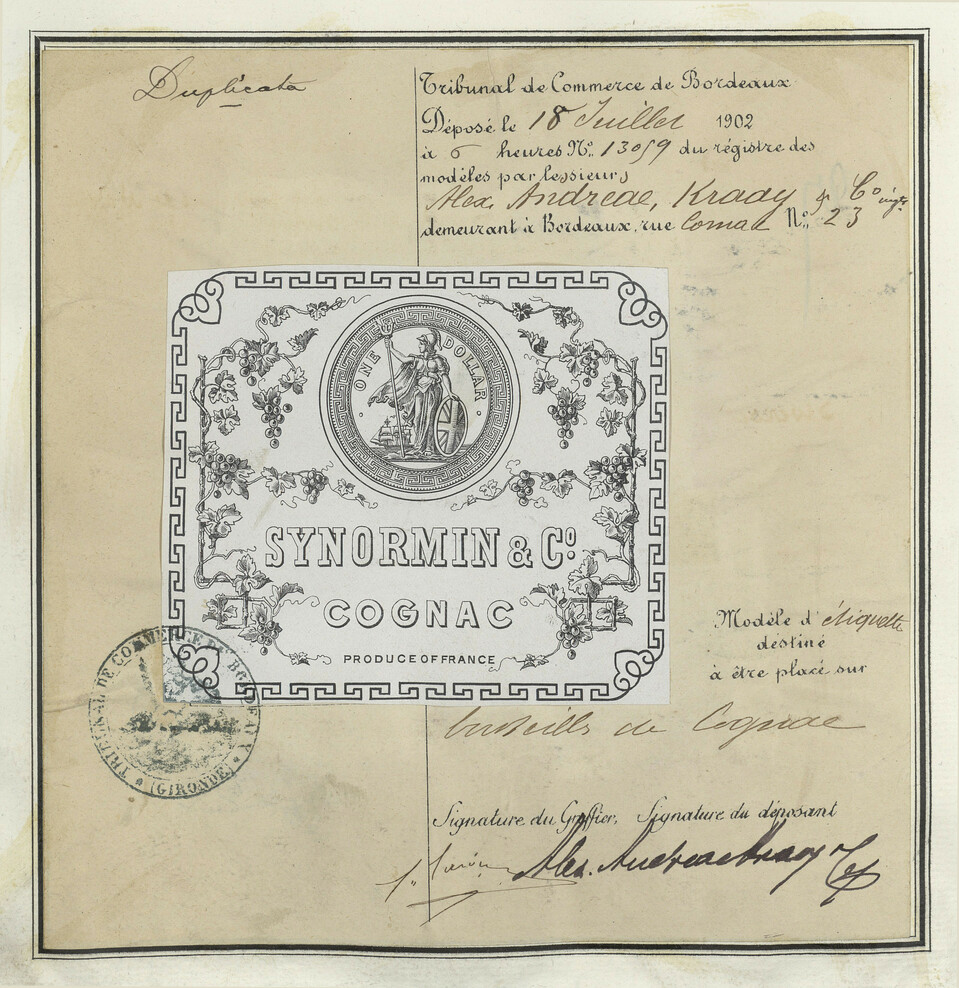 Duplicata
Tribunal de Commerce de Bordeaux
Déposé le 18 Juillet 1902
à 6 heures No. 13059 du régistre des
modèles par les sieurs
Alex. Andreae, Krady & Co
demeurant à Bordeaux, rue No. 23
ONE DOLLAR
SYNORMIN & Co.
COGNAC
PRODUCE OF FRANCE
Modèle d'étiquette
destiné
à être placé sur
bouteilles de Cognac
TRIBUNAL DE COMMERCE DE BORDEAUX
(GIRONDE)
Signature du Greffier, Signature du déposant
Alex. Andreae Krady & Co